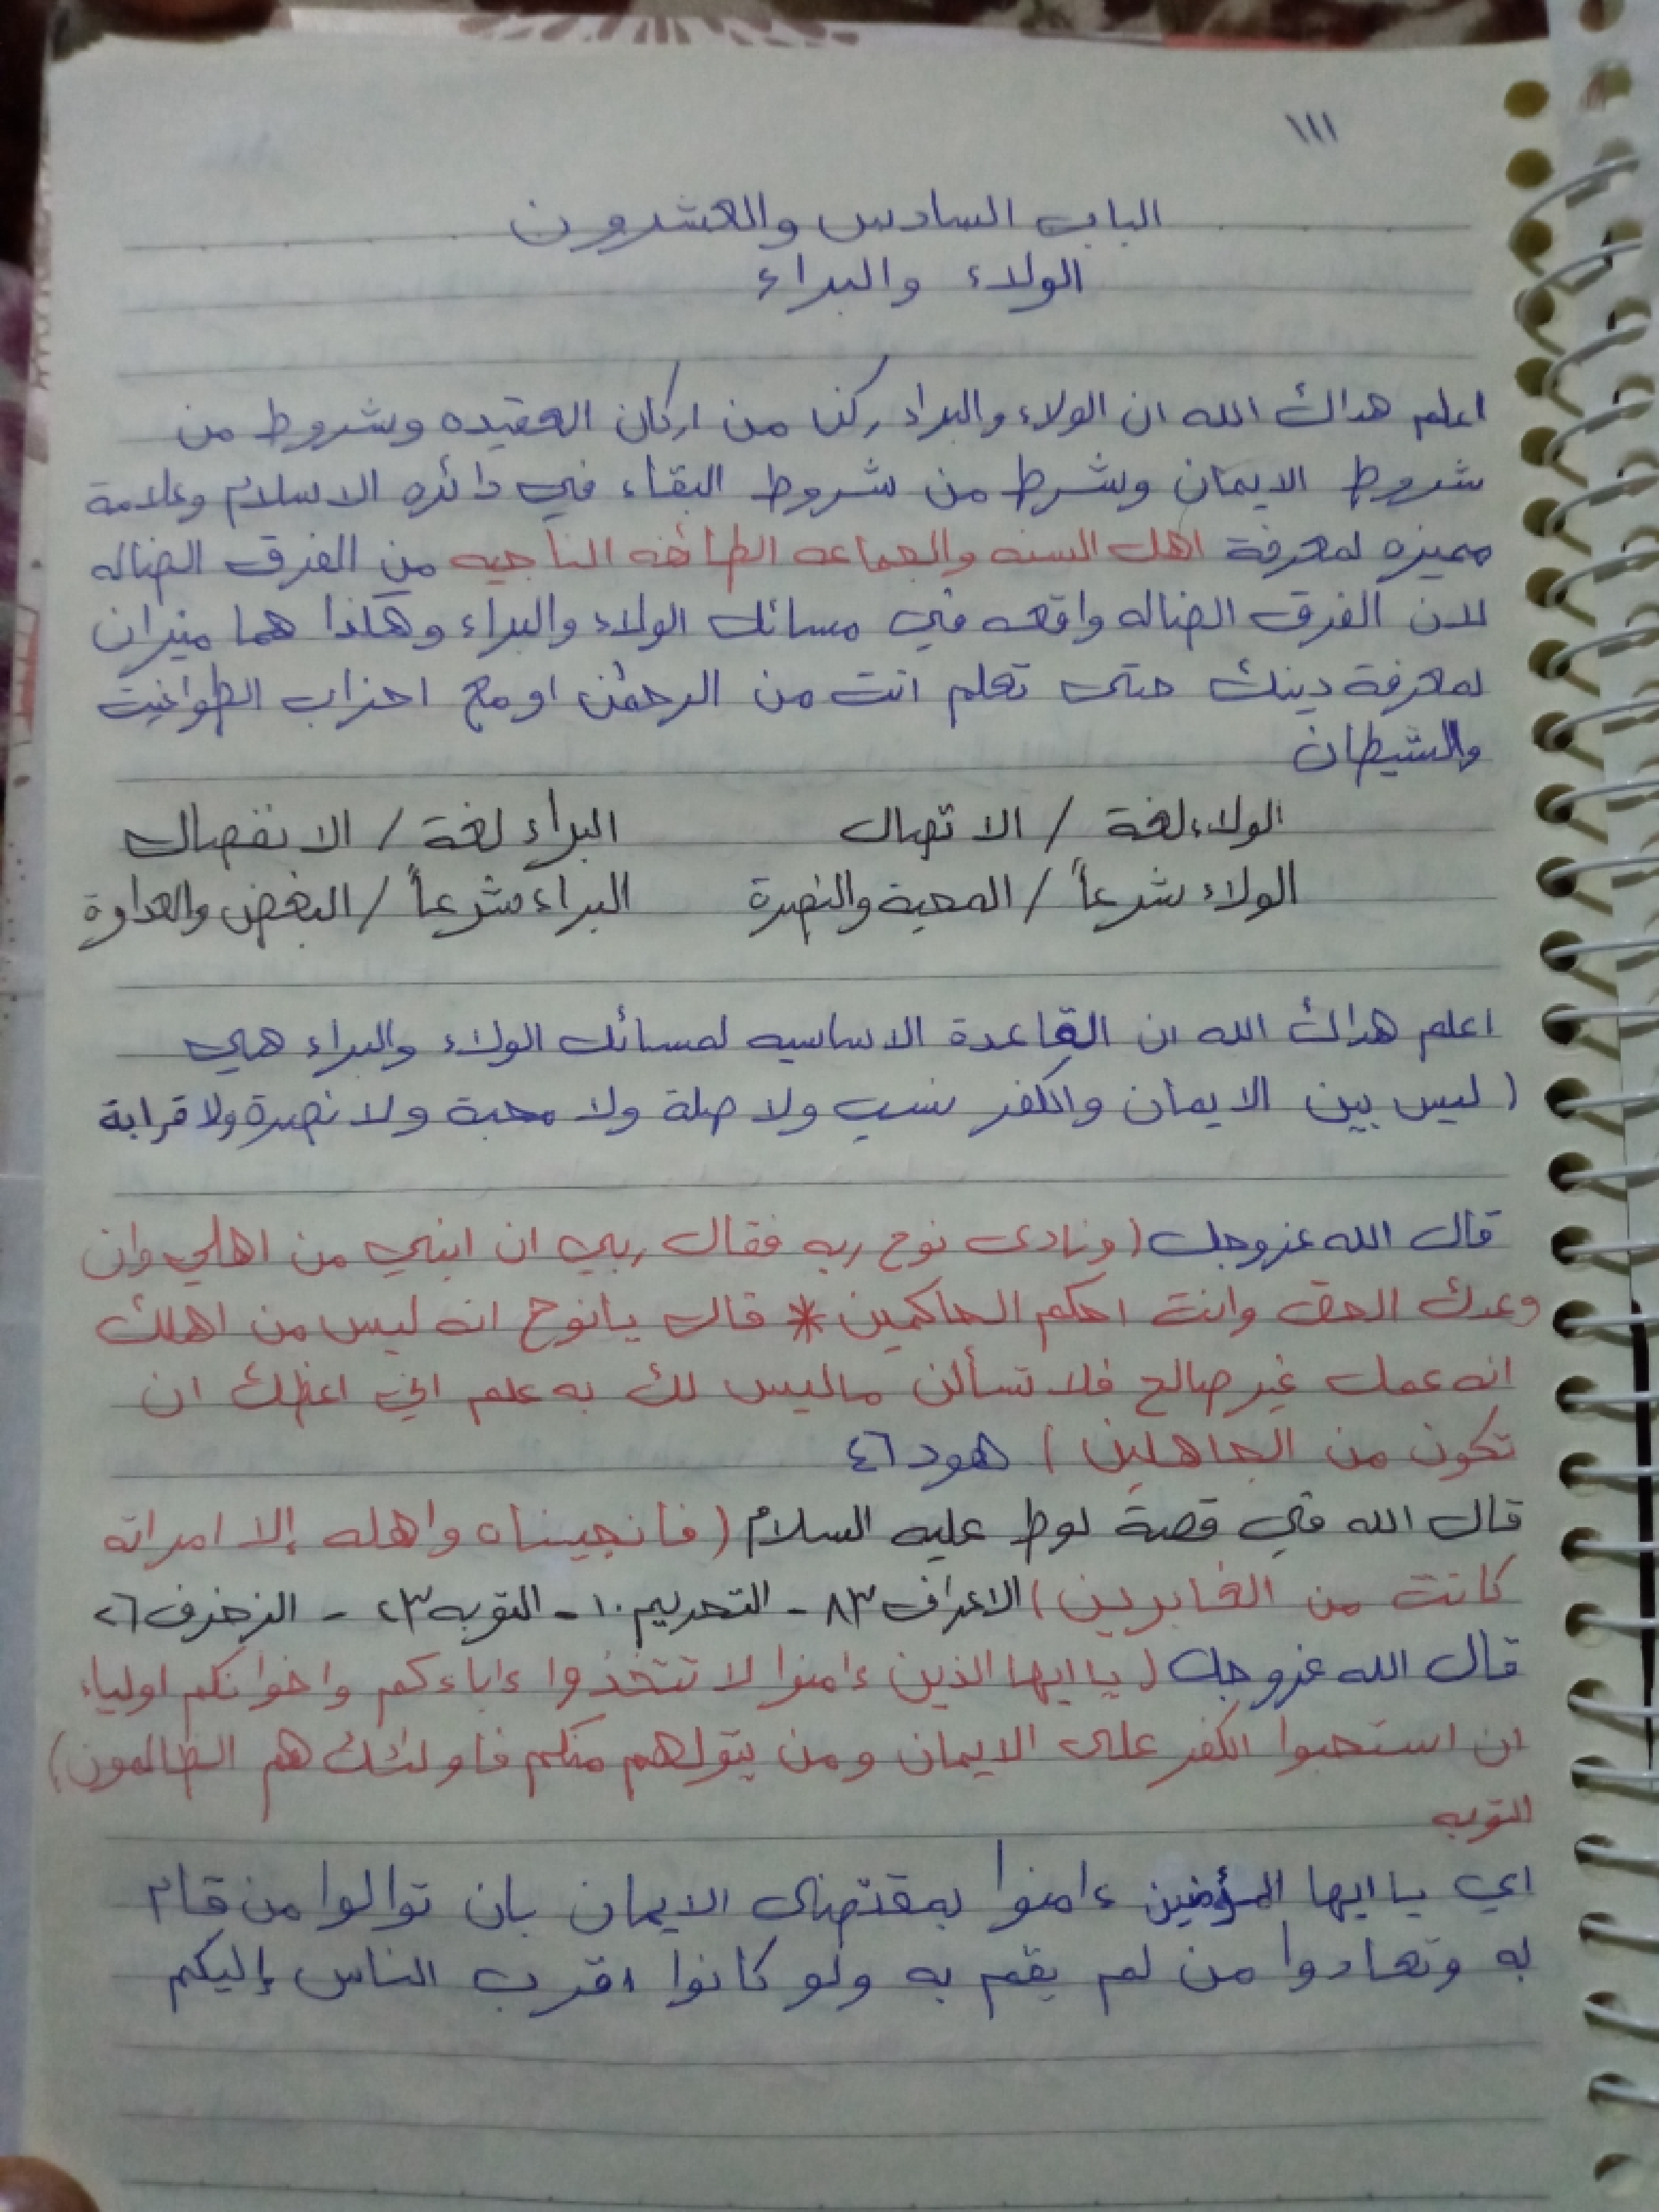 ١١١
الباب السادس والعشرون
الولاء والبراء
اعلم هداك الله ان الولاء والبراء ركن من اركان العقيده وشروط من
شروط الايمان وشرط من شروط البقاء في دائره الاسلام وعلامة
مميزه لمعرفة اهل السنه والجماعه الطائفه الناجيه من الفرق الضاله
لان الفرق الضاله واقعه في مسائل الولاء والبراء وهكذا هما ميزان
لمعرفة دينك حتى تعلم انت من الرحمن او مع احزاب الطواغيت
والشيطان
الولاء لغة / الاتصال البراء لغة / الانفصال
الولاء شرعاً / المحبة والنصرة البراء شرعاً / البغض والعداوة
اعلم هداك الله ان القاعدة الاساسيه لمسائل الولاء والبراء هي
( ليس بين الايمان والكفر نسب ولا صلة ولا محبة ولا نصرة ولا قرابة
قال الله عزوجل ( ونادى نوح ربه فقال ربي ان ابني من اهلي وان
وعدك الحق وانت احكم الحاكمين * قال يانوح انه ليس من اهلك
انه عمل غير صالح فلا تسألن ماليس لك به علم اني اعظك ان
تكون من الجاهلين ) هود ٤٦
قال الله في قصة لوط عليه السلام ( فانجيناه واهله إلا امراته
كانت من الغابرين ) الاعراف ٨٣ - التحريم ١٠ - التوبه ٢٣ - الزخرف ٢٦
قال الله عزوجل ( ياايها الذين ءامنوا لا تتخذوا ءاباءكم واخوانكم اولياء
ان استحبوا الكفر على الايمان ومن يتولهم منكم فاولئك هم الظالمون )
التوبه
اي ياايها المؤمنين ءامنوا بمقتضى الايمان بان توالوا من قام
به وتعادوا من لم يقم به ولو كانوا اقرب الناس إليكم